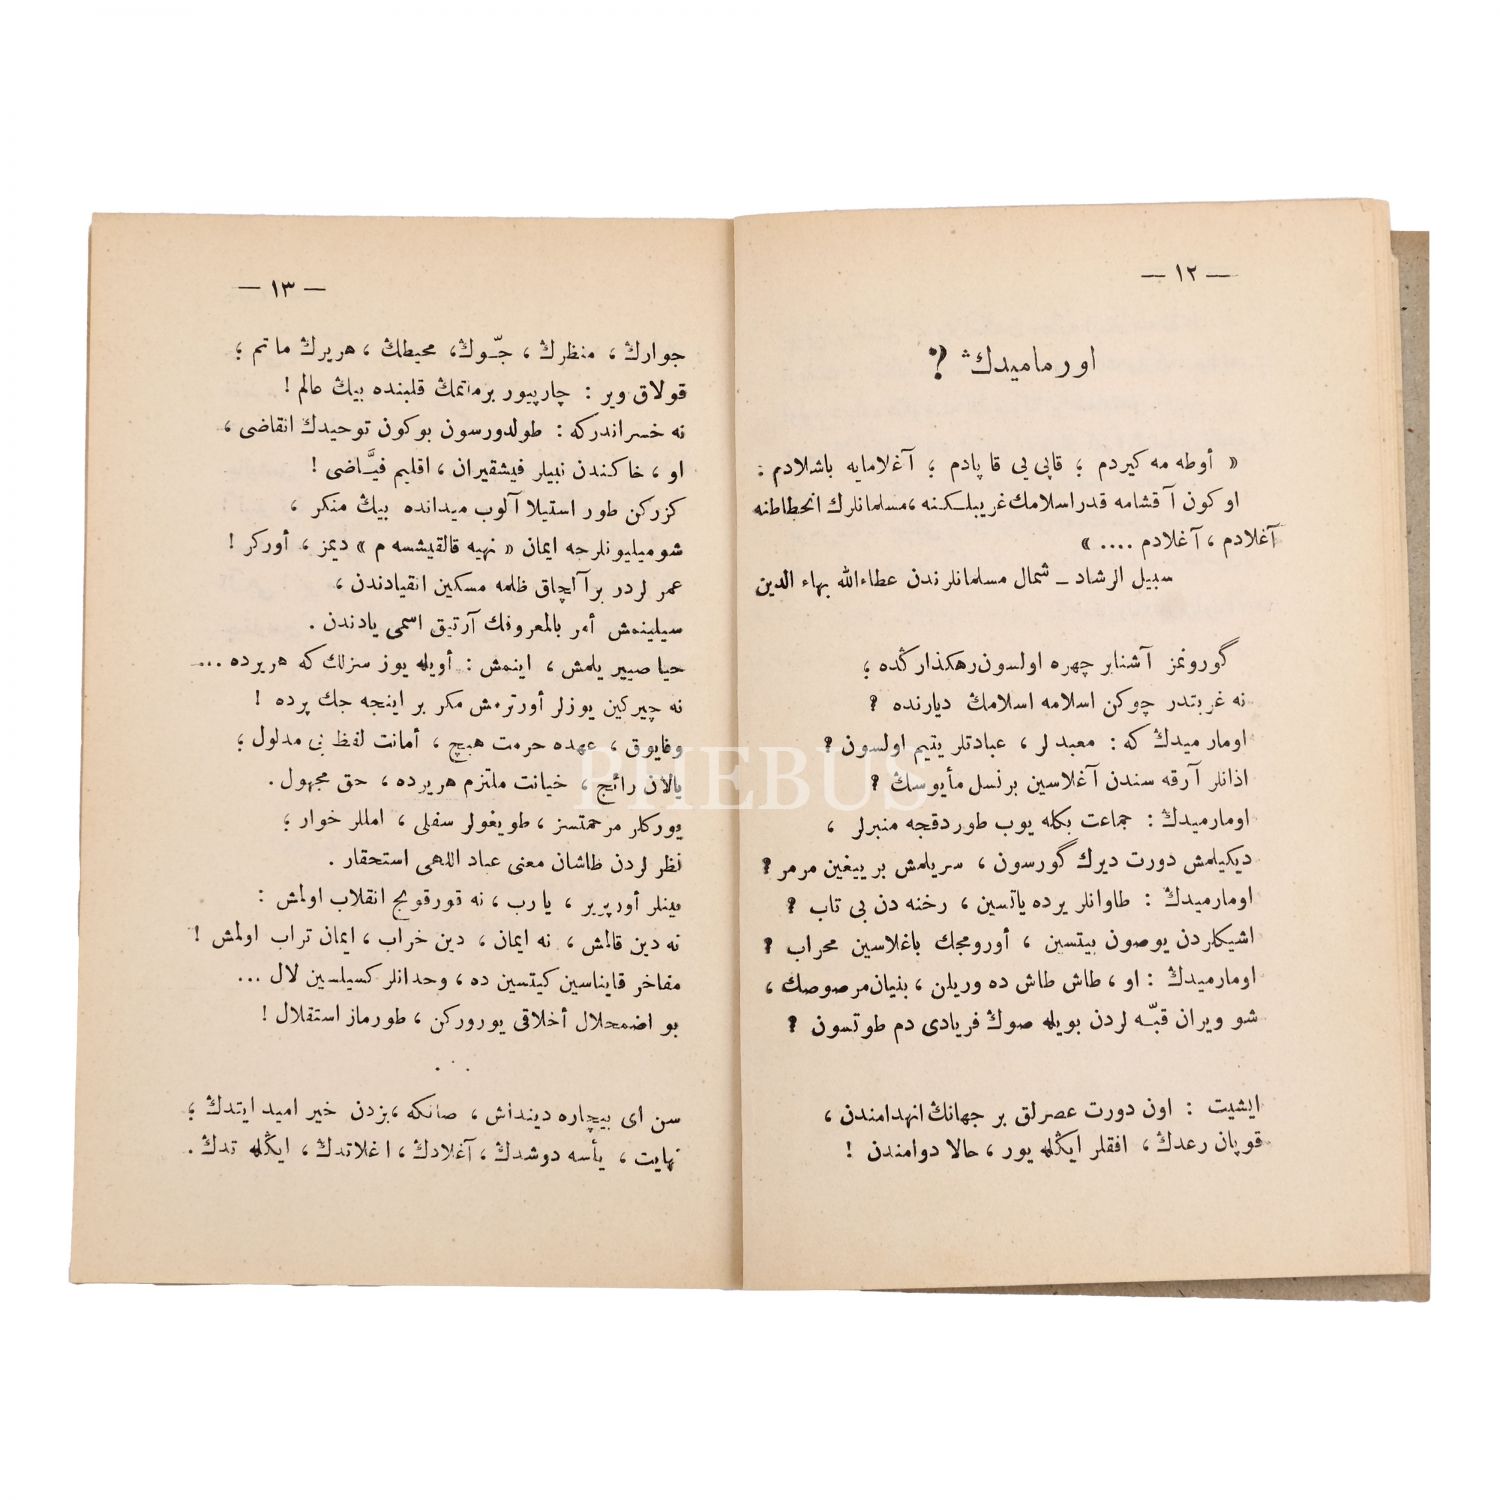 — ١٢ —
اورماميدك ?
« أوطه مه كيردم ؛ قاپى يى قاپادم ؛ آغلامايه باشلادم :
اوكون آقشامه قدر اسلامك غريبلكنه ، مسلمانلرك انحطاطنه
آغلادم ، آغلادم .... »
سبيل الرشاد ـ شمال مسلمانلرندن عطاءالله بهاء الدين
گورونمز آشنابر چهره اولسون رهكذارڭده ؛
نه غربتدر چوكن اسلامه اسلامڭ ديارنده ?
اومارميدڭ كه : معبدلر ، عبادتلر يتيم اولسون ?
اذانلر آرقه سندن آغلاسين برنسل مأيوسڭ ?
اومارميدڭ : جماعت بكله يوب طوردقجه منبرلر ،
ديكيلمش دورت ديرك گورسون ، سريلمش بر ييغين مرمر ?
اومارميدڭ : طاوانلر يرده ياتسين ، رخنه دن بى تاب ?
اشيكلردن يوصون بيتسين ، أورومجك باغلاسين محراب ?
اومارميدڭ : او ، طاش طاش ده وريلن ، بنيان مرصوصڭ ،
شو ويران قبّه لردن بويله صوڭ فريادى دم طوتسون ?
ايشيت : اون دورت عصرلق بر جهانڭ انهدامندن ،
قوپان رعدڭ ، افقلر ايڭله يور ، حالا دوامندن !
— ١٣ —
جوارڭ ، منظرڭ ، جّوڭ ، محيطڭ ، هريرڭ ماتم ؛
قولاق وير : چارپيور برماتمڭ قلبنده بيڭ عالم !
نه خسراندركه : طولدورسون بوكون توحيدڭ انقاضى ،
او ، خاكندن نبيلر فيشقيران ، اقليم فيّاضى !
كزركن طور استيلا آلوب ميدانده بيڭ منكر ،
شو ميليونلرجه ايمان « نهيه قالقيشسه م » ديمز ، أوركر !
عمر لردر بر آلچاق ظلمه مسكين انقيادندن ،
سيلينمش أمر بالمعروفڭ آرتيق اسمى ياددن .
حيا صييريلمش ، اينمش : أويله يوز سزلك كه هريرده ...
نه چيركين يوزلر أورترمش مكر بر اينجه جك پرده !
وفايوق ، عهده حرمت هيچ ، أمانت لفظ بى مدلول ؛
يالان رائج ، خيانت ملتزم هريرده ، حق مجهول .
يوركلر مرحمتسز ، طويغولر سفلى ، امللر خوار ؛
نظرلردن طاشان معنى عباد اللهى استحقار .
بينلر أورپرير ، يارب ، نه قورقونج انقلاب اولمش :
نه دين قالمش ، نه ايمان ، دين خراب ، ايمان تراب اولمش !
مفاخر قايناسين كيتسين ده ، وجدانلر كسيلسين لال ...
بو اضمحلال أخلاقى يوروركن ، طورماز استقلال !
. . .
سن اى بيچاره دينداش ، صانكه ، بزدن خير اميد ايتدڭ ؛
نهايت ، يأسه دوشدڭ ، آغلادڭ ، اغلاتدڭ ، ايڭله تدڭ .
PHEBUS